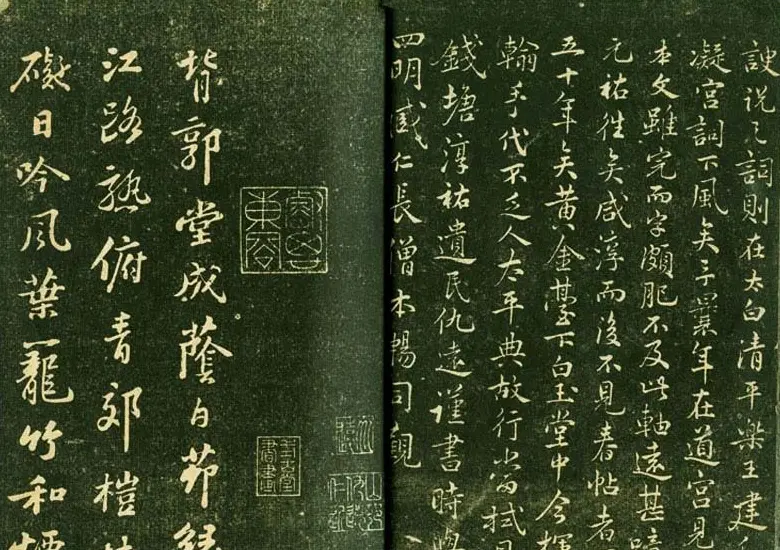 说之詞則在太白清平樂王建
凝宫詞下風矣予曩年在道宫見
本文雖完而字頗肥不及此軸遠甚
元祐徃矣咸淳而後不見春帖者
五十年矣黄金臺下白玉堂中今揮
翰手代不乏人太平典故行當拭目
錢塘淳祐遺民仇遠謹書時與
四明臧仁長僧本暢同觀
背郭堂成蔭白茆緣
江路熟俯青郊榿林
礙日吟風葉籠竹和煙